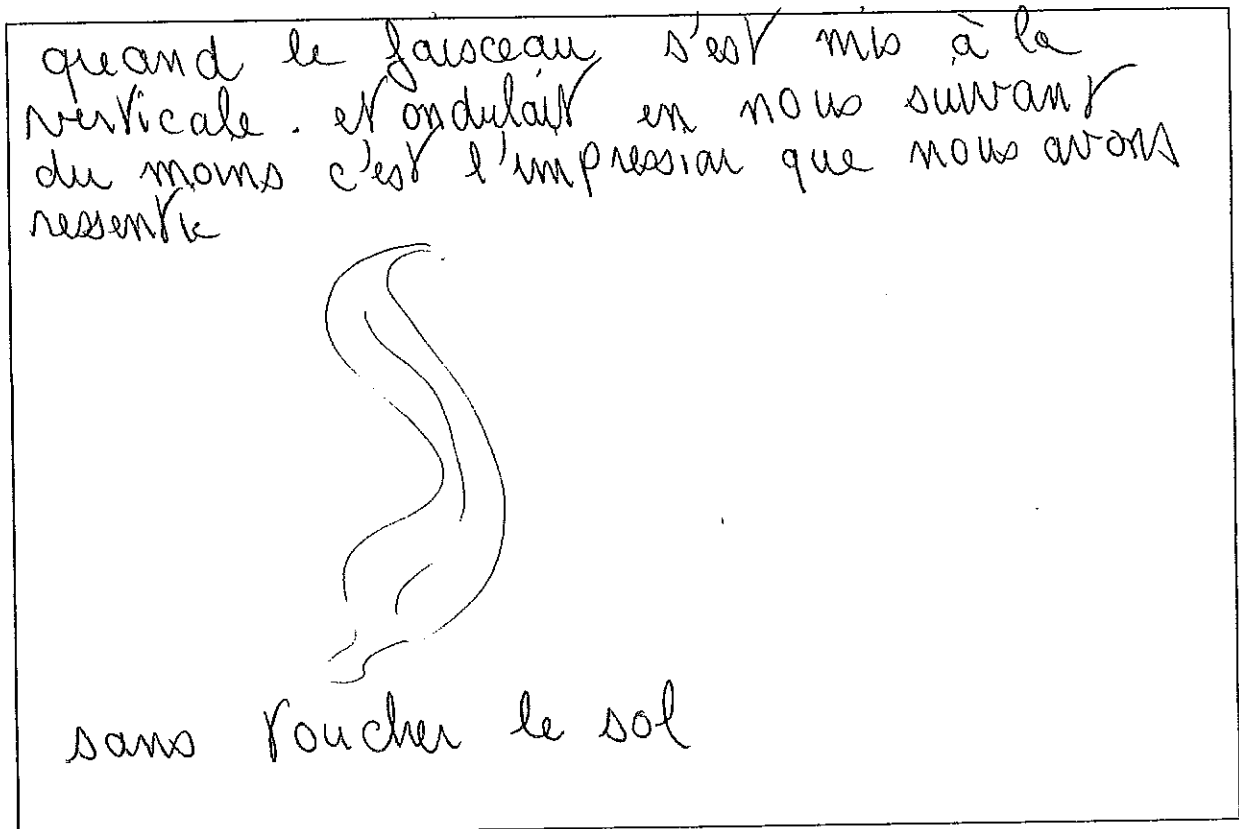 quand le faisceau s'est mis à la
verticale. et ondulait en nous suivant
du moins c'est l'impression que nous avons
ressentie
sans toucher le sol